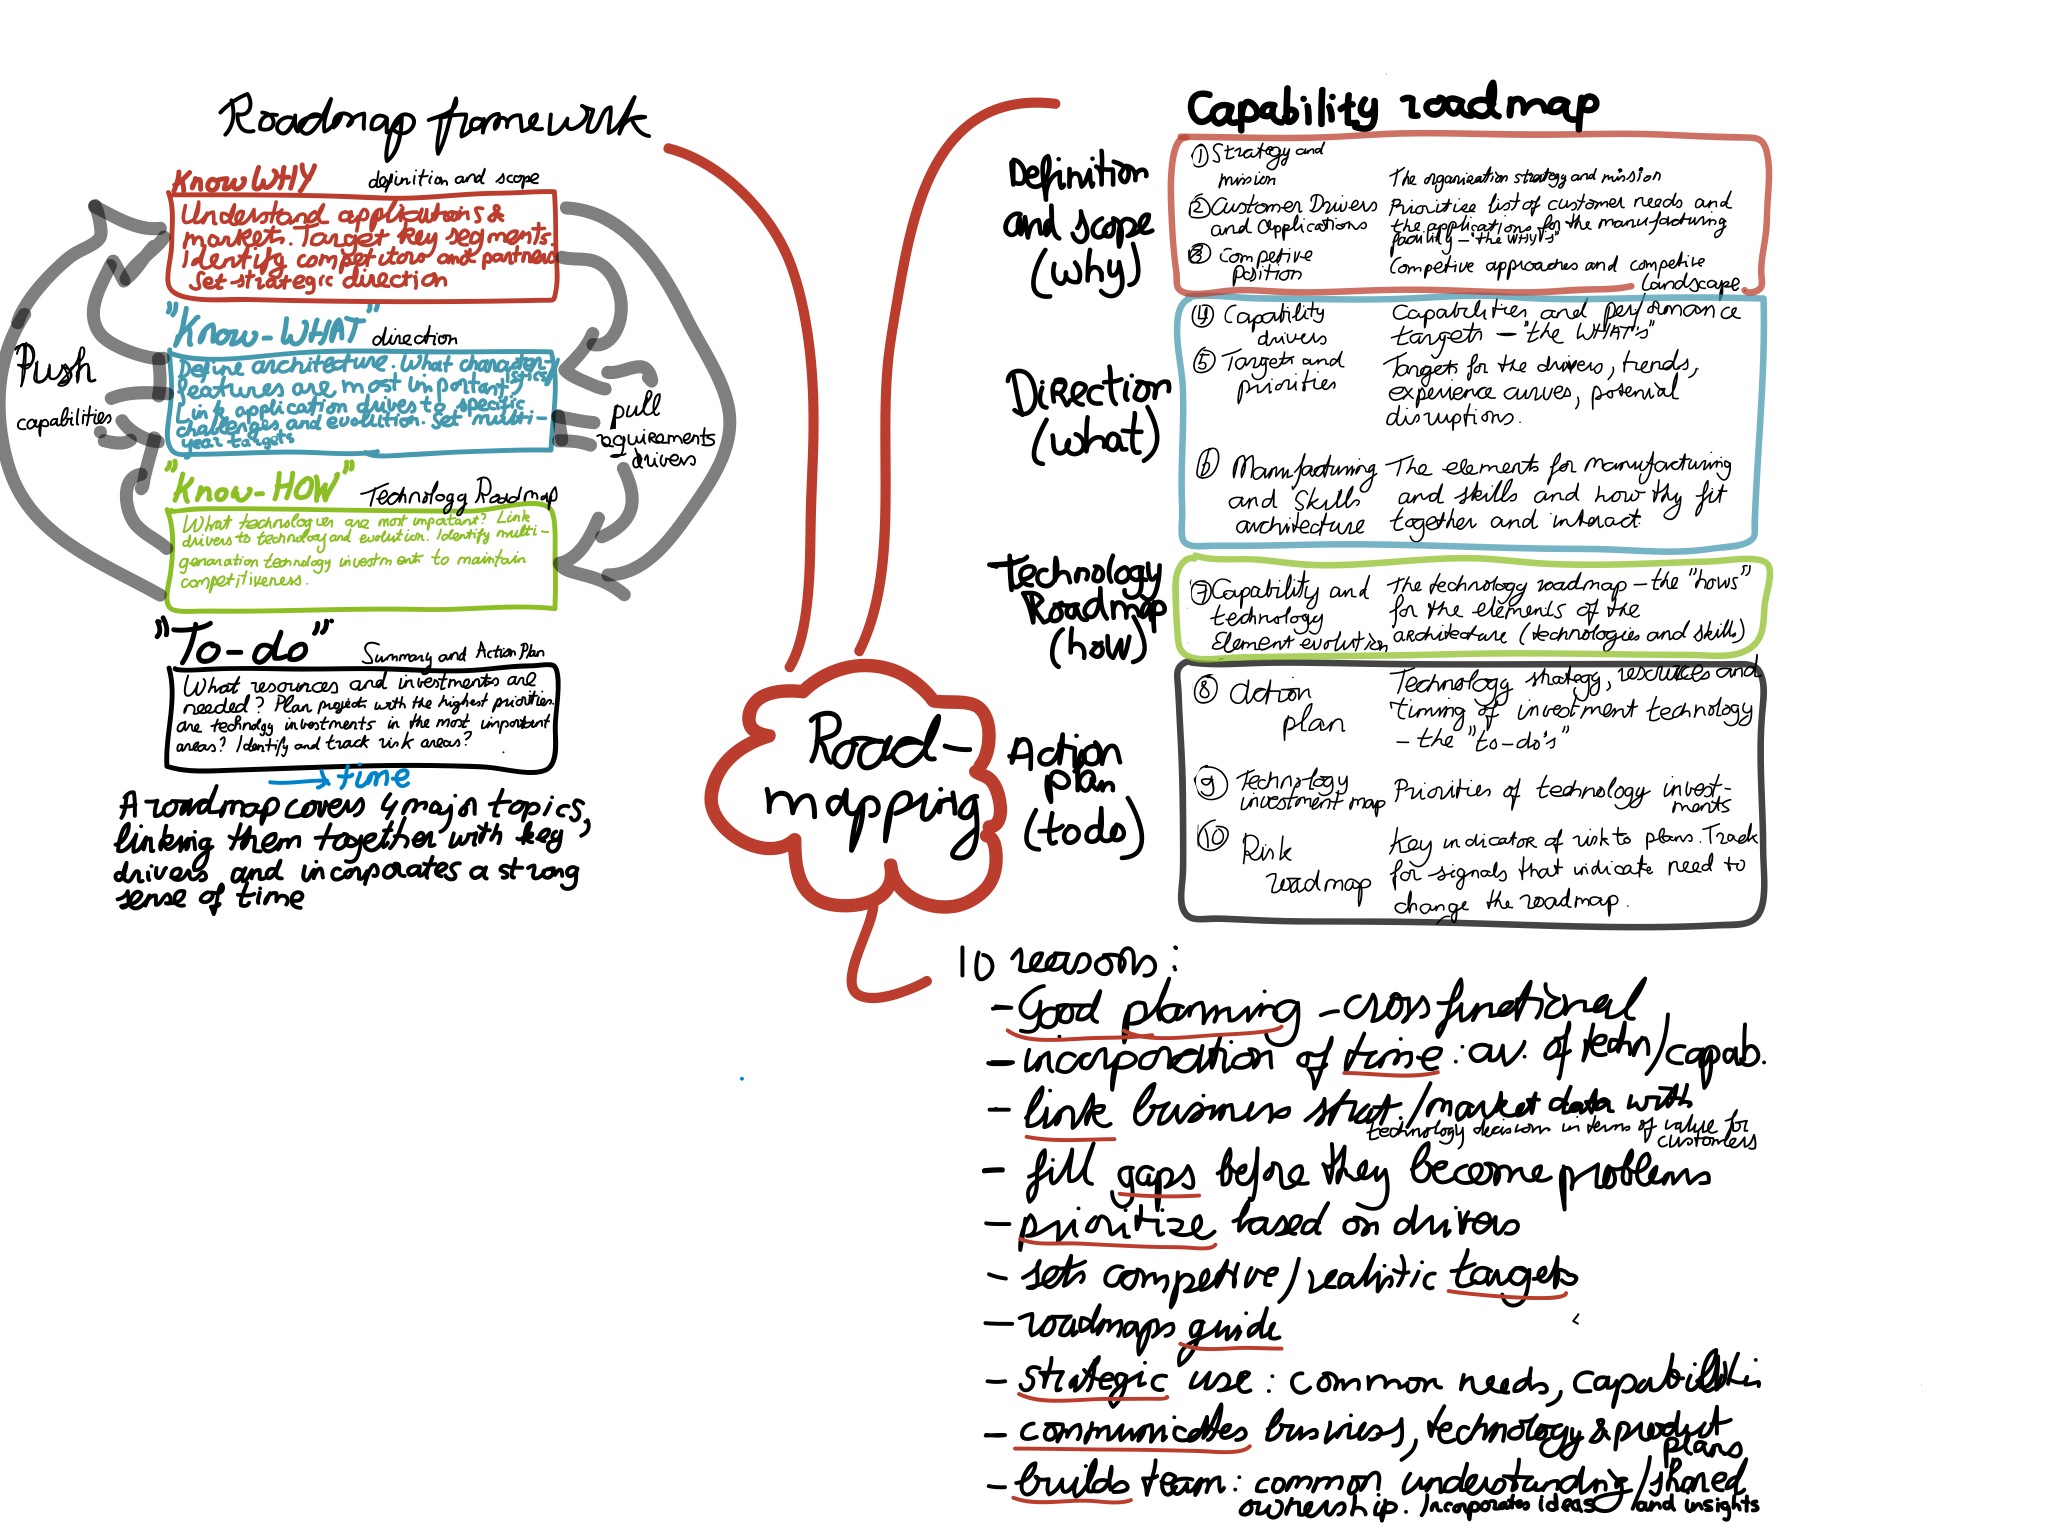 Roadmap framework
Know WHY definition and scope
Understand applications &
markets. Target key segments.
Identify competitors and partners
Set strategic direction
"Know-WHAT" direction
Define architecture. What character-
istics/
features are most important
Link application drives to specific
challenges and evolution. Set multi-
year targets
"Know-HOW" Technology Roadmap
What technologies are most important? Link
drivers to technology and evolution. Identify multi-
generation technology investments to maintain
competitiveness.
"To-do" Summary and Action Plan
What resources and investments are
needed? Plan projects with the highest priorities
are technology investments in the most important
areas? Identify and track risk areas?
time
A roadmap covers 4 major topics,
linking them together with key
drivers and incorporates a strong
sense of time
Push
capabilities
pull
requirements
drivers
Road-
mapping
Capability roadmap
Definition
and scope
(why)
① Strategy and
mission
The organization strategy and mission
② Customer Drivers
and Applications
Prioritise list of customer needs and
the applications for the manufacturing
facility - "the WHY's"
③ Competive
Position
Competive approaches and competive
landscape
Direction
(what)
④ Capability
drivers
Capabilities and performance
targets - "the WHAT's"
⑤ Targets and
priorities
Targets for the drivers, trends,
experience curves, potential
disruptions.
⑥ Manufacturing
and Skills
architecture
The elements for manufacturing
and skills and how thy fit
together and interact
Technology
Roadmap
(how)
⑦ Capability and
technology
Element evolution
The technology roadmap - the "hows"
for the elements of the
architecture (technologies and skills)
Action
plan
(to do)
⑧ Action
plan
Technology strategy, resources and
timing of investment technology
- the "to-do's"
⑨ Technology
investment map
Priorities of technology invest-
ments
⑩ Risk
roadmap
Key indicator of risk to plans. Track
for signals that indicate need to
change the roadmap.
10 reasons:
- Good planning - cross functional
- incorporation of time: av. of techn/capab.
- link business strat./market data with
technology decisions in terms of value for
customers
- fill gaps before they become problems
- prioritize based on drivers
- sets competive/realistic targets
- roadmaps guide
- strategic use: common needs, capabilities
- communicates business, technology & product
plans
- builds team: common understanding/shared
ownership. Incorporates ideas and insights